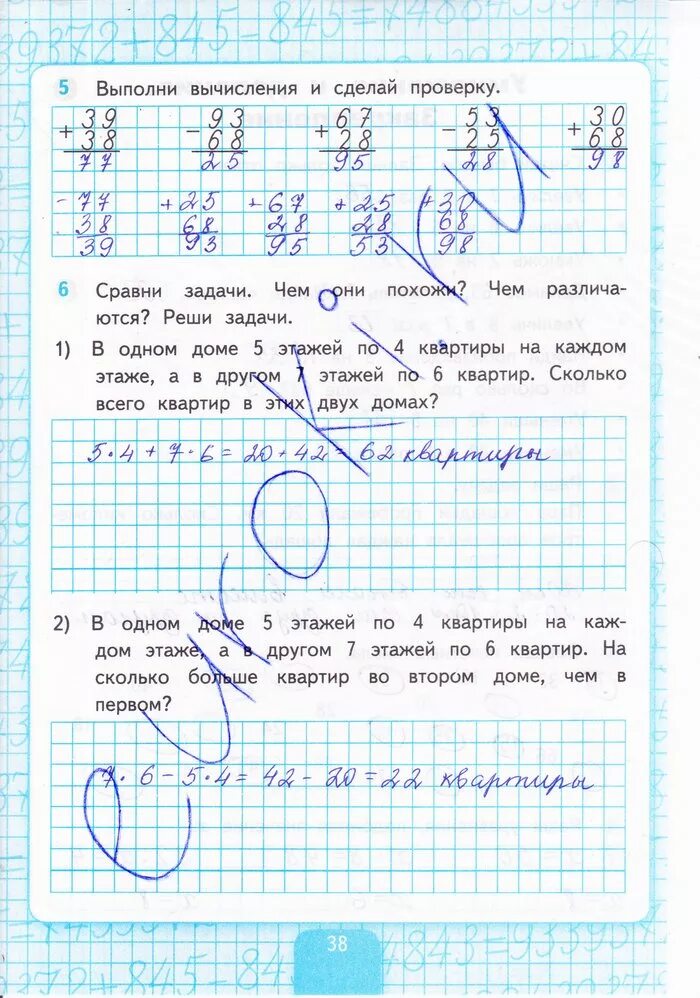 39372+845-845=
5 Выполни вычисления и сделай проверку.
+39 -93 +67 -53 +30
38 68 28 25 68
77 25 95 28 98
-77 +25 +67 +25 +30
38 68 28 28 68
39 93 95 53 98
6 Сравни задачи. Чем они похожи? Чем различа-
ются? Реши задачи.
1) В одном доме 5 этажей по 4 квартиры на каждом
этаже, а в другом 7 этажей по 6 квартир. Сколько
всего квартир в этих двух домах?
5·4+7·6=20+42=62 квартиры
2) В одном доме 5 этажей по 4 квартиры на каж-
дом этаже, а в другом 7 этажей по 6 квартир. На
сколько больше квартир во втором доме, чем в
первом?
7·6-5·4=42-20=22 квартиры
38